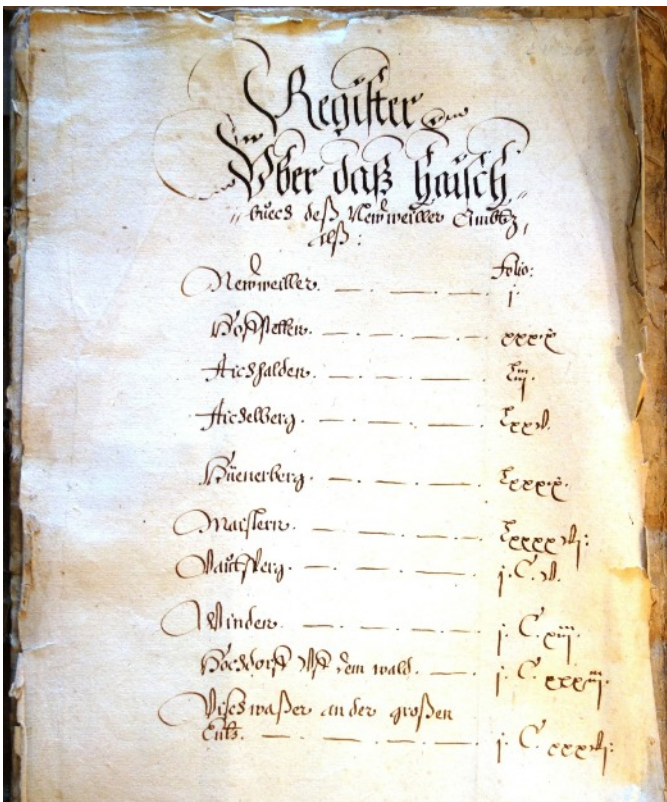 Register
Über daß haisch
buech deß Newweiller Ambtz,
Alß:
Folio:
Newweiller. j.
Hoffstetten. xxxix
Aichhalden. Liij.
Aichelberg. Lxxv.
Hüenerberg. Lxxxix.
Maistern. Lxxxxvj:
Vautsperg. j. C. v.
Winden. j. C. xiij
Hochdorff Vff dem wald. j. C. xxxiij.
Vischwaßer an der großen
Entz. j. C. xxxvj: